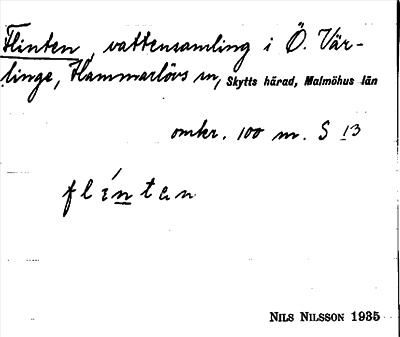 Flinten, vattensamling i Ö. Vär-
linge, Hammarlövs sn, Skytts härad, Malmöhus län
omkr. 100 m. S 13
flíntan
NILS NILSSON 1935